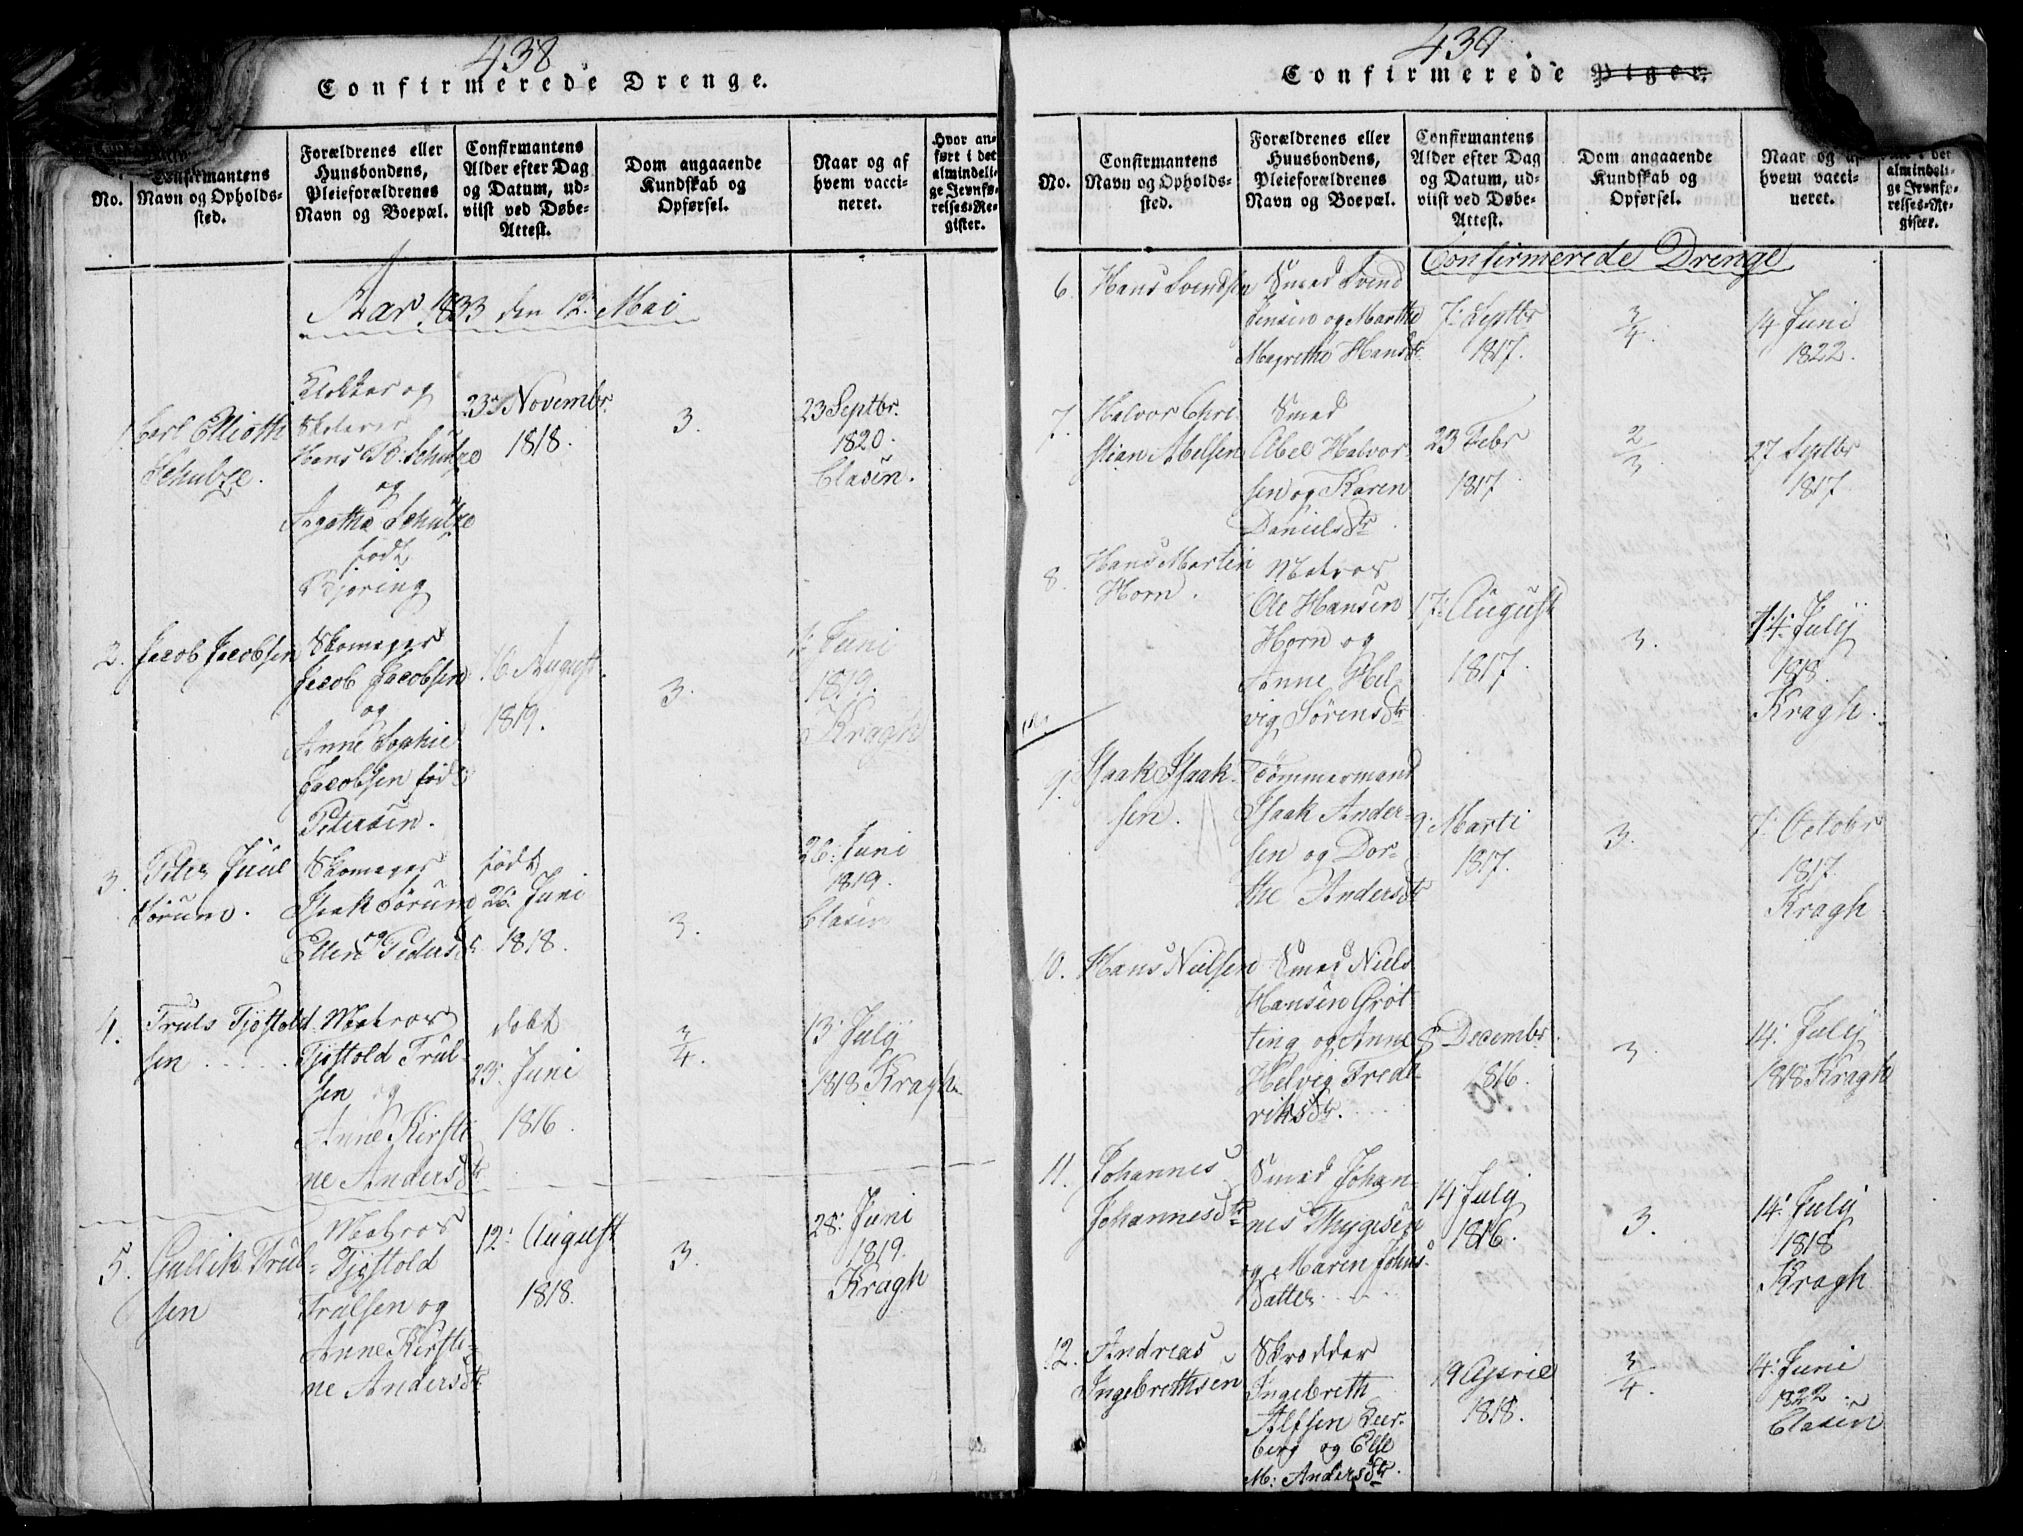 438
Confirmerede Drenge.
No.
Confirmantens
Navn og Opholds-
sted.
Forældrenes eller
Huusbondens,
Pleieforældrenes
Navn og Boepæl.
Confirmantens
Alder efter Dag
og Datum, ud-
viist ved Døbe-
Attest.
Dom angaaende
Kundskab og
Opførsel.
Naar og af
hvem vacci-
neret.
Hvor an-
ført i det
almindeli-
ge Jevnfø-
relses-Re-
gister.
Aar 1833 den 12. Mai
1.
Carl Ellioth
Schulze.
Klokker og
Skolerer
Hans P. Schulze
og
Agatha Schulze
født
Bjering
23 Novembr.
1818.
3.
23 Septbr.
1820.
Clasen.
2.
Jacob Jacobsen
Skomager
Jacob Jacobsen
og
Anne Sophie
Jacobsen fød
Petersen.
16 August.
1819.
3.
Juni
1819.
Kragh
3.
Peter Juul
Sørum.
Skomager
Isaak Sørum
og
Ellen Peders
født
26. Juni
1818.
3.
26. Juni
1819.
Clasen
4.
Truls Tjøstold
sen
Matros
Tjøstold Trul-
sen og
Anne Kirsti
ne Andersdtr
døbt
23. Juni
1816.
3/4.
13. July
1818 Kragh
5.
Gullik Trul-
sen
Matros
Tjøstold
Trulsen og
Anne Kirsti-
ne Andersdtr
12. August
1818.
3.
28. Juni
1819.
Kragh
439.
Confirmerede Piger.
No.
Confirmantens
Navn og Opholds-
sted.
Forældrenes eller
Huusbondens,
Pleieforældrenes
Navn og Boepæl.
Confirmantens
Alder efter Dag
og Datum, ud-
viist ved Døbe-
Attest.
Dom angaaende
Kundskab og
Opførsel.
Naar og af
hvem vacci-
neret.
almindeli-
ge Jevnfø-
relses-Re-
gister.
Confirmerede Drenge
6.
Hans Svendsen
Smed Svend
Jensen og Marthe
Magrethe Hansdtr
7. Septbr
1817.
3/4.
14 Juni
1822.
7.
Halvor Chri-
stian Abelsen
Smed
Abel Halvor
sen og Karen
Danielsdtr
23 Febr
1817
2/3.
27 Septbr
1817.
8.
Hans Martin
Horn.
Matros
Ole Hansen
Horn og
Anne Hel-
vig Sørensdtr
17. August
1817.
3.
14. July
1818.
Kragh.
9.
Isaak Isaak-
sen.
Tømmermand
Isaak Ander-
sen og Dor-
the Andersdtr
9. Marti
1817.
3.
7. Octobr
1817.
Kragh
10.
Hans Nielsen
Smed Niels
Hansen Grøt
ting og Anne
Helvig Fred-
riksdtr.
8 Decembr.
1816.
3.
14. July
1818 Kragh
11.
Johannes
Johannesdtr
Smed Johan-
nes Thygesen
og Maren Johns
Datter
14 July
1816.
3.
14. July
1818
Kragh
12.
Andreas
Ingebrethsen
Skrædder
Ingebreth
Alfsen
berg og Else
M. Andersdtr.
19 April
1818.
3/4.
4. Juni
1822.
Clasen